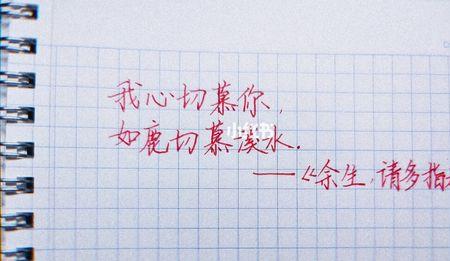 我心切慕你,
如鹿切慕溪水.
——《余生,请多指
小红书